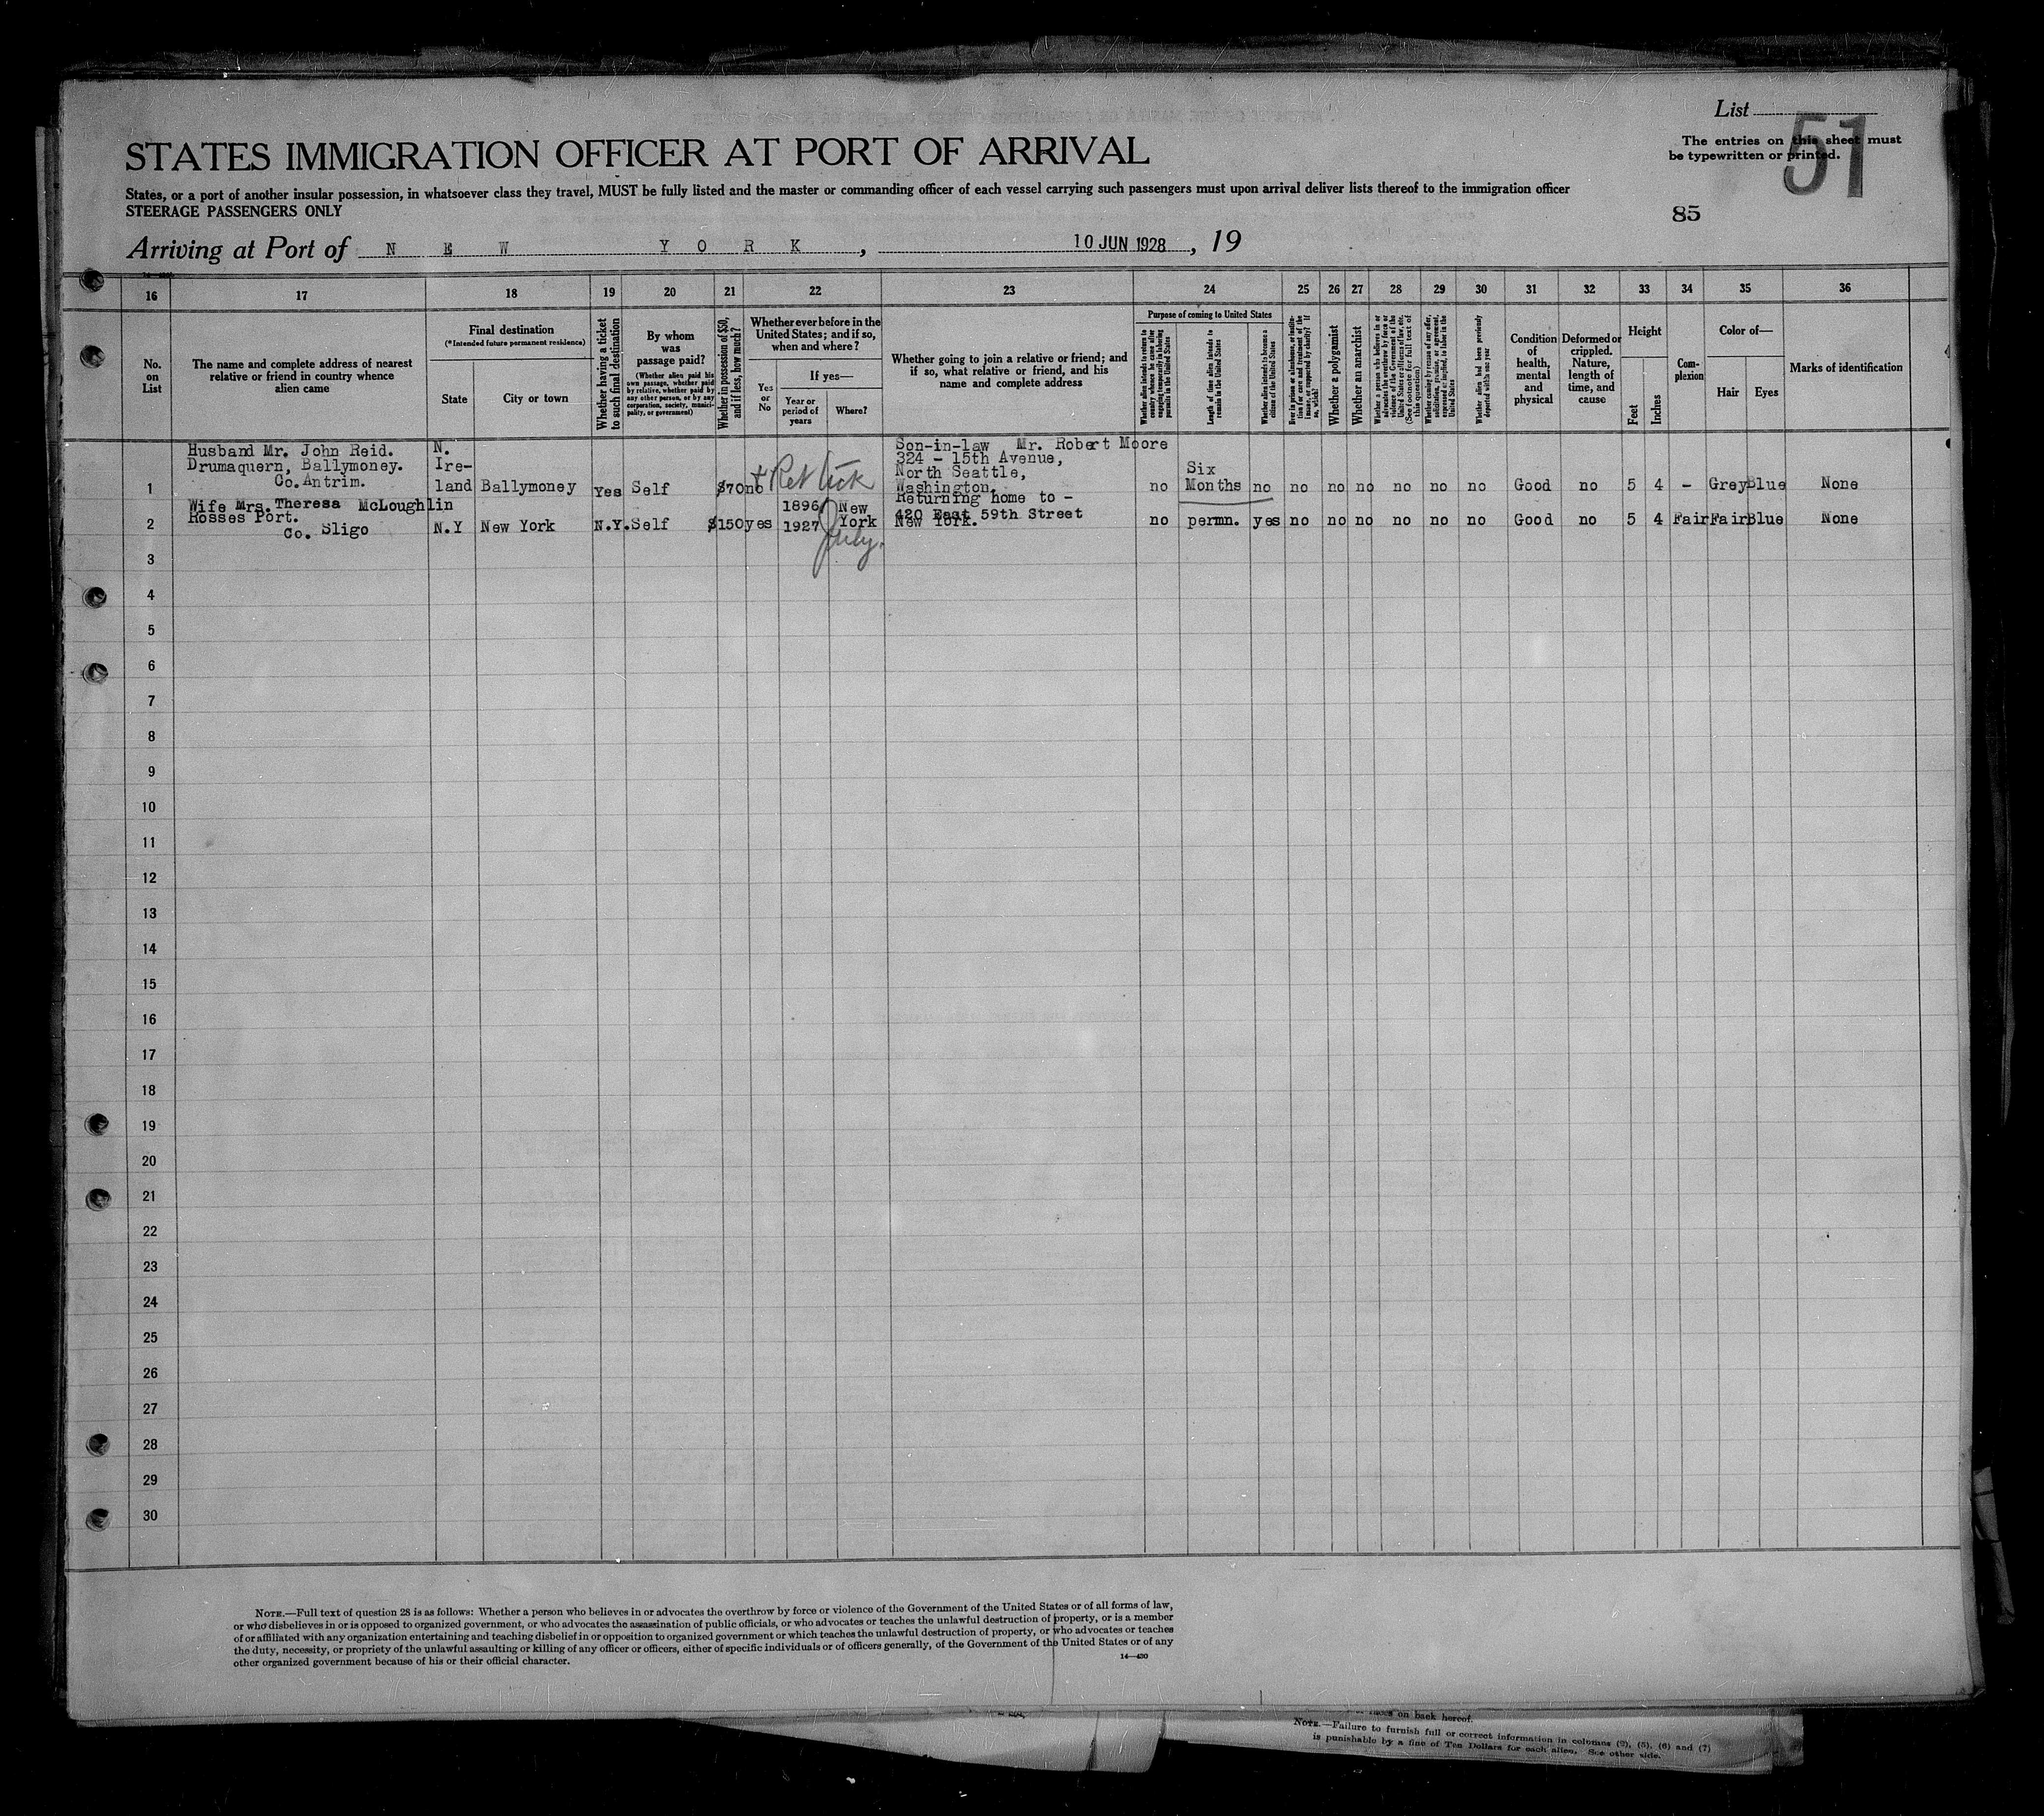 List
51
The entries on this sheet must
be typewritten or printed.
STATES IMMIGRATION OFFICER AT PORT OF ARRIVAL
States, or a port of another insular possession, in whatsoever class they travel, MUST be fully listed and the master or commanding officer of each vessel carrying such passengers must upon arrival deliver lists thereof to the immigration officer
STEERAGE PASSENGERS ONLY
85
Arriving at Port of NEW YORK, 10 JUN 1928, 19
16 17 18 19 20 21 22 23 24 25 26 27 28 29 30 31 32 33 34 35 36
No. on List
The name and complete address of nearest relative or friend in country whence alien came
Final destination
(*Intended future permanent residence)
State
City or town
Whether having a ticket to such final destination
By whom was passage paid?
(Whether alien paid his own passage, whether paid by relative, whether paid by any other person, or by any corporation, society, municipality, or government)
Whether in possession of $50, and if less, how much?
Whether ever before in the United States; and if so, when and where?
Yes or No
If yes—
Year or period of years
Where?
Whether going to join a relative or friend; and if so, what relative or friend, and his name and complete address
Purpose of coming to United States
Whether alien intends to return to country whence he came after engaging temporarily in laboring pursuits in the United States
Length of time alien intends to remain in the United States
Whether alien intends to become a citizen of the United States
Ever in prison or almshouse, or institution for care and treatment of the insane, or supported by charity? If so, which?
Whether a polygamist
Whether an anarchist
Whether a person who believes in or advocates the overthrow by force or violence of the Government of the United States or all forms of law, etc. (See footnote for full text of this question)
Whether coming by reason of any offer, solicitation, promise, or agreement, expressed or implied, to labor in the United States
Whether alien had been previously deported within one year
Condition of health, mental and physical
Deformed or crippled. Nature, length of time, and cause
Height
Feet
Inches
Complexion
Color of—
Hair
Eyes
Marks of identification
1 Husband Mr. John Reid. Drumaquern, Ballymoney. Co. Antrim. N. Ire-land Ballymoney Yes Self $70 no Ret tick Son-in-law Mr. Robert Moore 324 - 15th Avenue, North Seattle, Washington. no Six Months no no no no no no no Good no 5 4 - Grey Blue None
2 Wife Mrs. Theresa McLoughlin Rosses Port. Co. Sligo N.Y New York N.Y. Self $150 yes 1896/ 1927 New York July. Returning home to - 420 East 59th Street New York. no permn. yes no no no no no no Good no 5 4 Fair Fair Blue None
3
4
5
6
7
8
9
10
11
12
13
14
15
16
17
18
19
20
21
22
23
24
25
26
27
28
29
30
NOTE.—Full text of question 28 is as follows: Whether a person who believes in or advocates the overthrow by force or violence of the Government of the United States or of all forms of law,
or who disbelieves in or is opposed to organized government, or who advocates the assassination of public officials, or who advocates or teaches the unlawful destruction of property, or is a member
of or affiliated with any organization entertaining and teaching disbelief in or opposition to organized government or which teaches the unlawful destruction of property, or who advocates or teaches
the duty, necessity, or propriety of the unlawful assaulting or killing of any officer or officers, either of specific individuals or of officers generally, of the Government of the United States or of any
other organized government because of his or their official character.
14—430
on back hereof.
NOTE.—Failure to furnish full or correct information in columns (2), (5), (6) and (7)
is punishable by a fine of Ten Dollars for each alien. See other side.